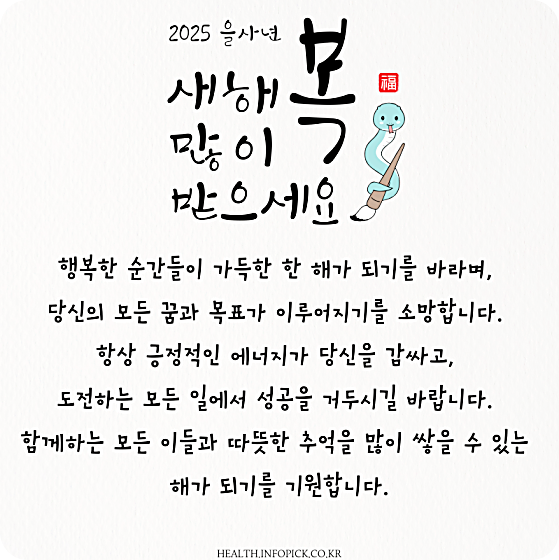 2025 을사년
새해 복
많이
받으세요
福
행복한 순간들이 가득한 한 해가 되기를 바라며,
당신의 모든 꿈과 목표가 이루어지기를 소망합니다.
항상 긍정적인 에너지가 당신을 감싸고,
도전하는 모든 일에서 성공을 거두시길 바랍니다.
함께하는 모든 이들과 따뜻한 추억을 많이 쌓을 수 있는
해가 되기를 기원합니다.
HEALTH.INFOPICK.CO.KR